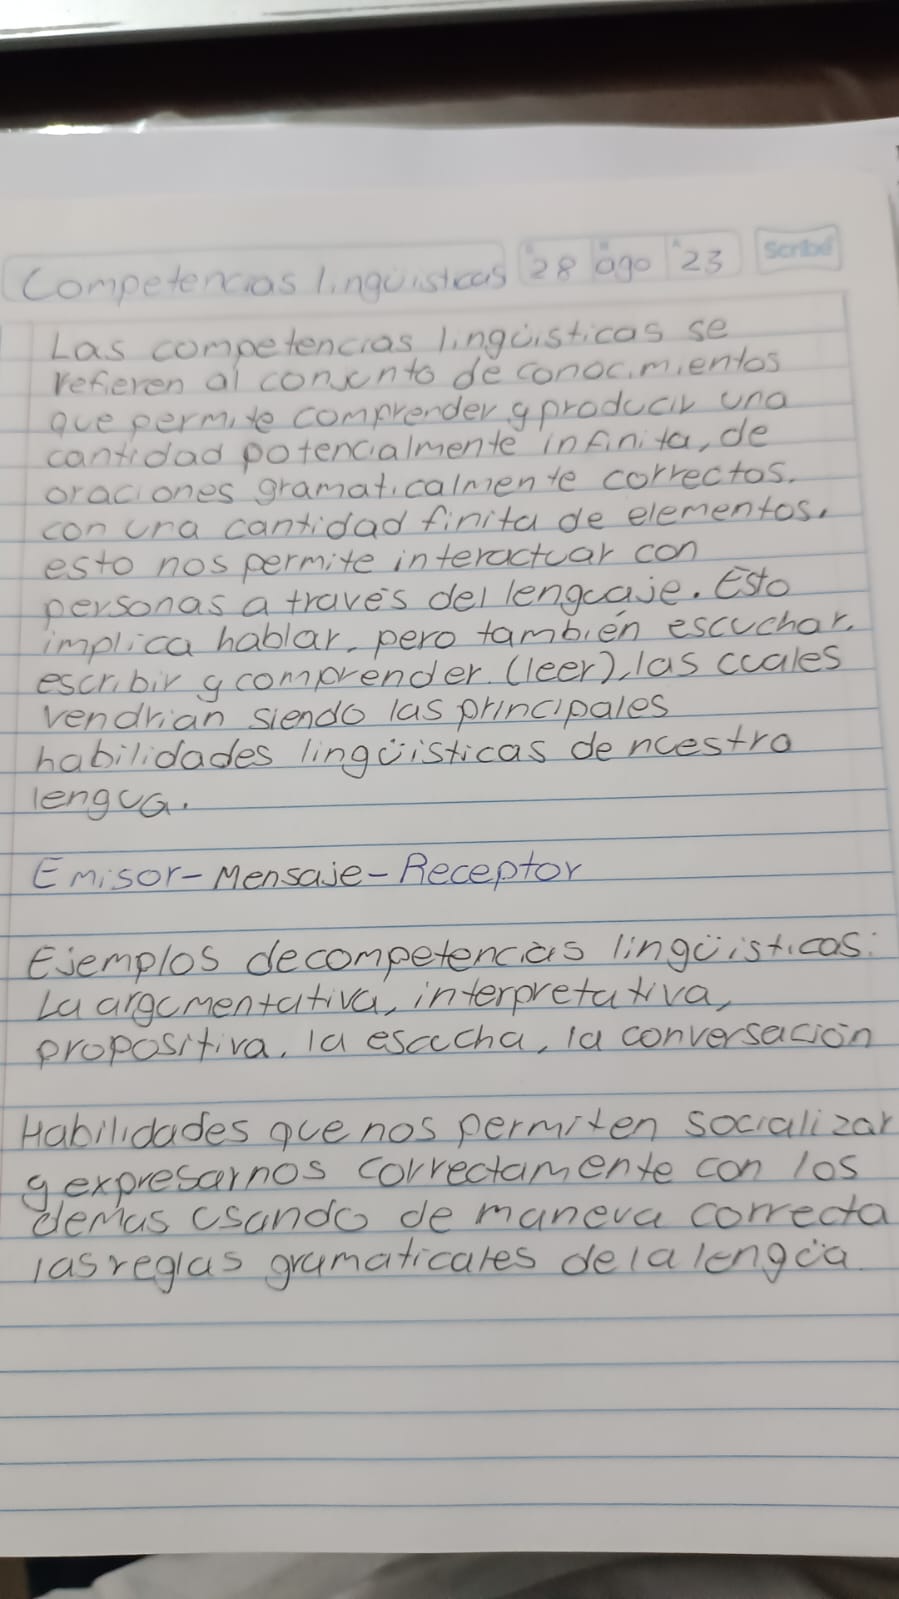 Competencias lingüisticas 28 ago 23 Scribe
Las competencias lingüisticas se
refieren al conjunto de conocimientos
que permite comprender y producir una
cantidad potencialmente infinita, de
oraciones gramaticalmente correctas.
con una cantidad finita de elementos.
esto nos permite interactuar con
personas a través del lenguaje. Esto
implica hablar, pero también escuchar,
escribir y comprender (leer), las cuales
vendrian siendo las principales
habilidades lingüisticas de nuestra
lengua.
Emisor-Mensaje-Receptor
Ejemplos de competencias lingüisticas:
La argumentativa, interpretativa,
propositiva, la escucha, la conversación
Habilidades que nos permiten socializar
y expresarnos correctamente con los
demás usando de manera correcta
las reglas gramaticales de la lengua